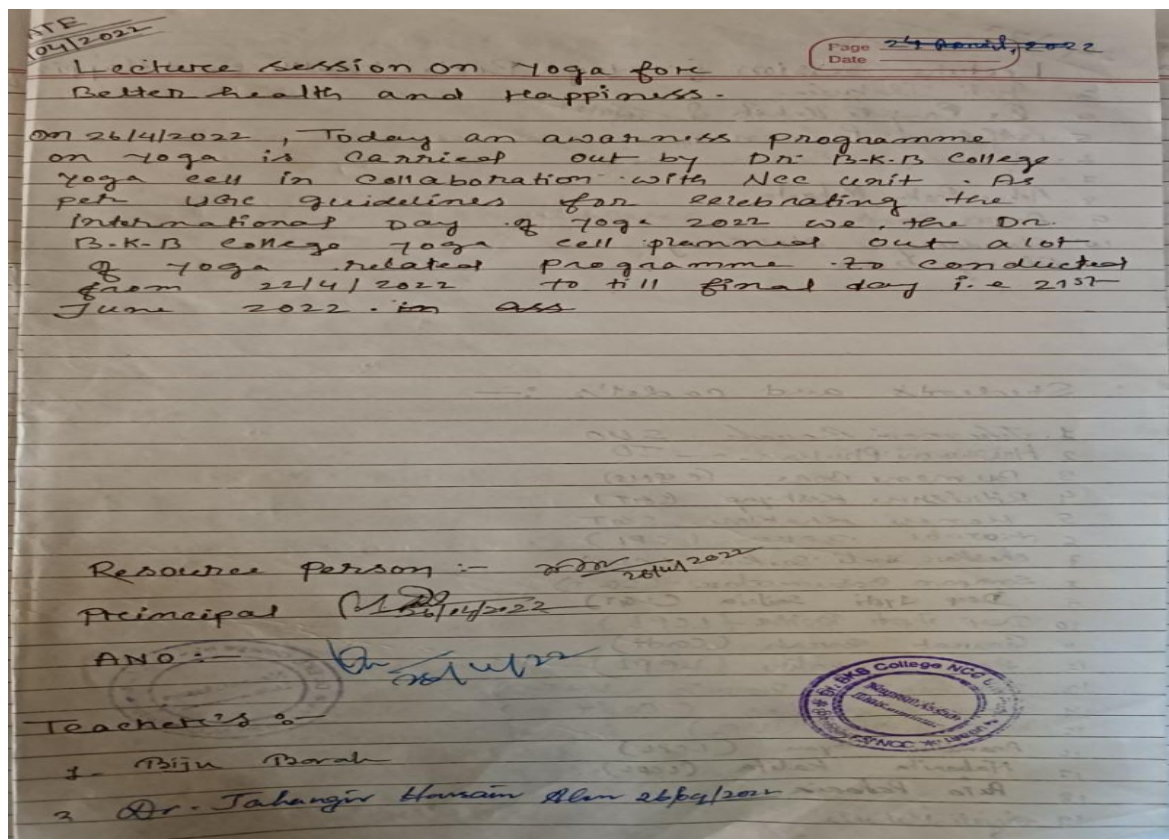 DATE
/04/2022
Page
Date
24 April, 2022
Lecture session on Yoga for
Better health and Happiness.
On 26/4/2022, Today an awarness programme
on Yoga is carried out by Dr. B-K-B College
Yoga cell in Collaboration with Ncc unit. As
per UGC guidelines for celebrating the
International Day of Yoga 2022 we, the Dr.
B-K-B College Yoga cell planned out a lot
of Yoga related programme to conducted
from 22/4/2022 to till final day i.e 21st
June 2022. in ass
Resource Person :- 26/4/2022
Principal 26/04/2022
ANO :-
Dr. BKB College NCC
Teacher's :-
1. Biju Borah
2 Dr. Jahangir Hussain Alam 26/04/2022